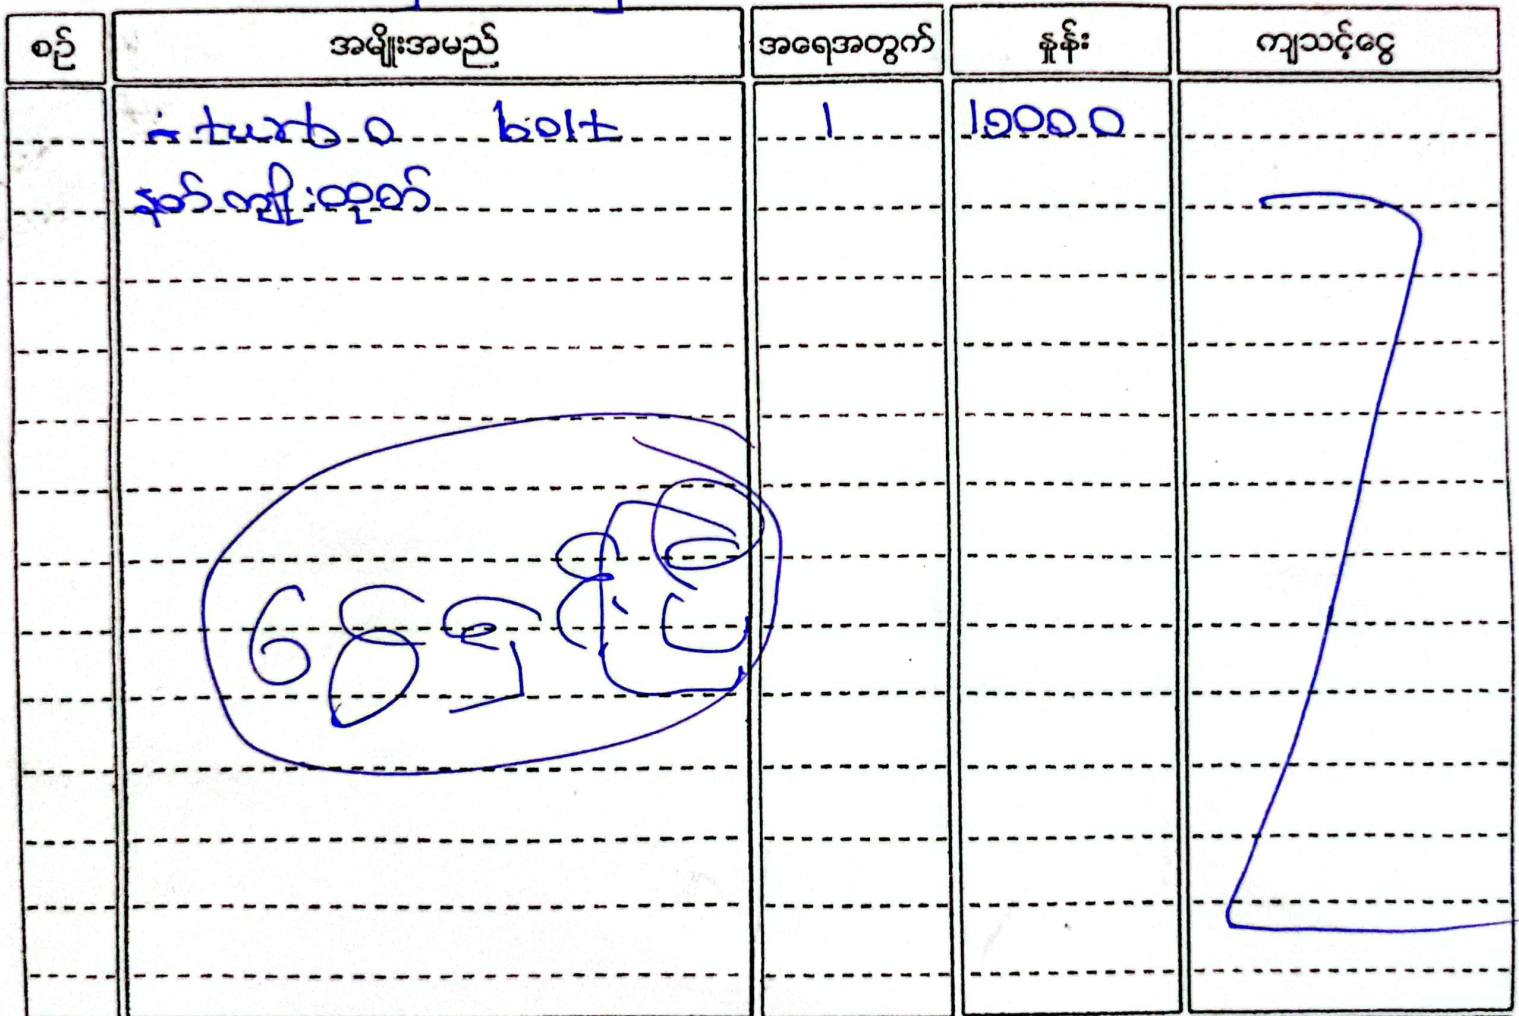 စဉ် အမျိုးအမည် အရေအတွက် နှုန်း ကျသင့်ငွေ
turbo bolt 1 15000
နတ်ကျိုးထုတ်
ငွေရှင်းပြီး